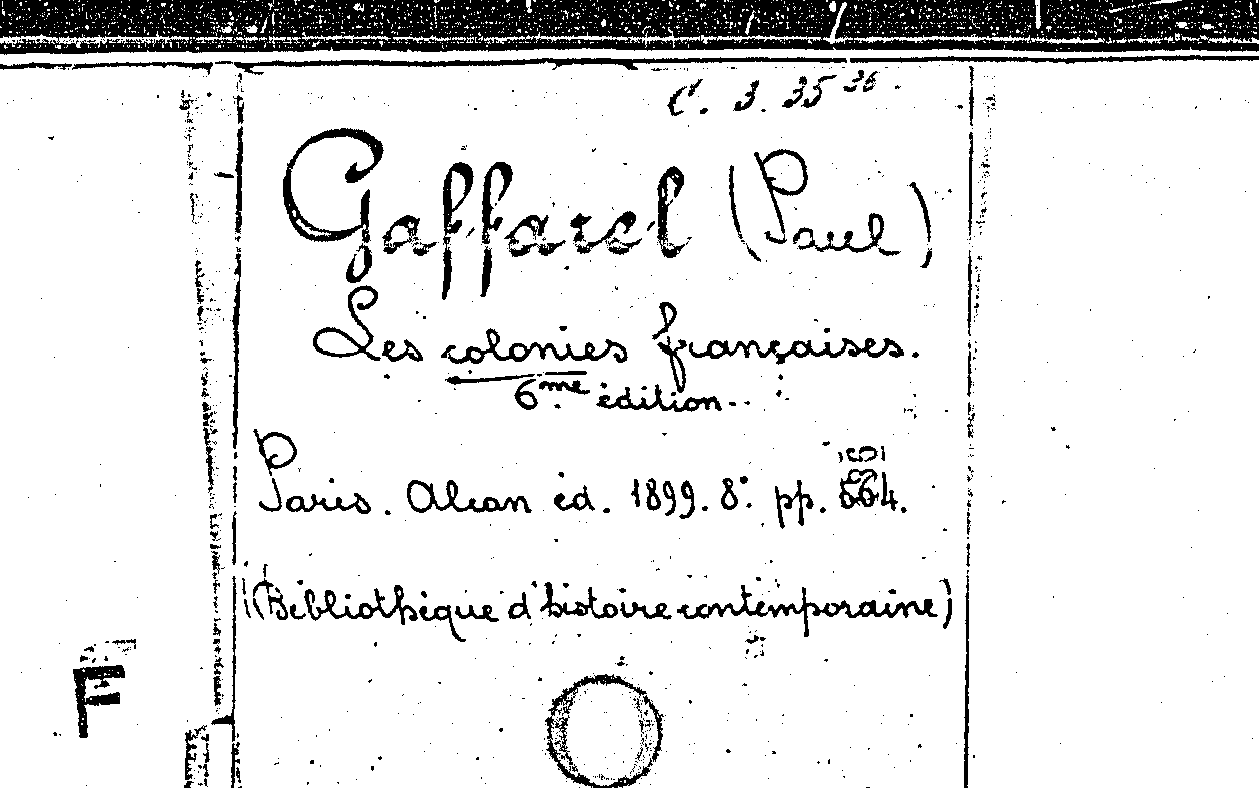 C. 3. 35 36.
Gaffarel (Paul)
Les colonies françaises.
6me édition.
Paris. Alcan éd. 1899. 8°. pp. 564.
(Bibliothèque d'histoire contemporaine)
F